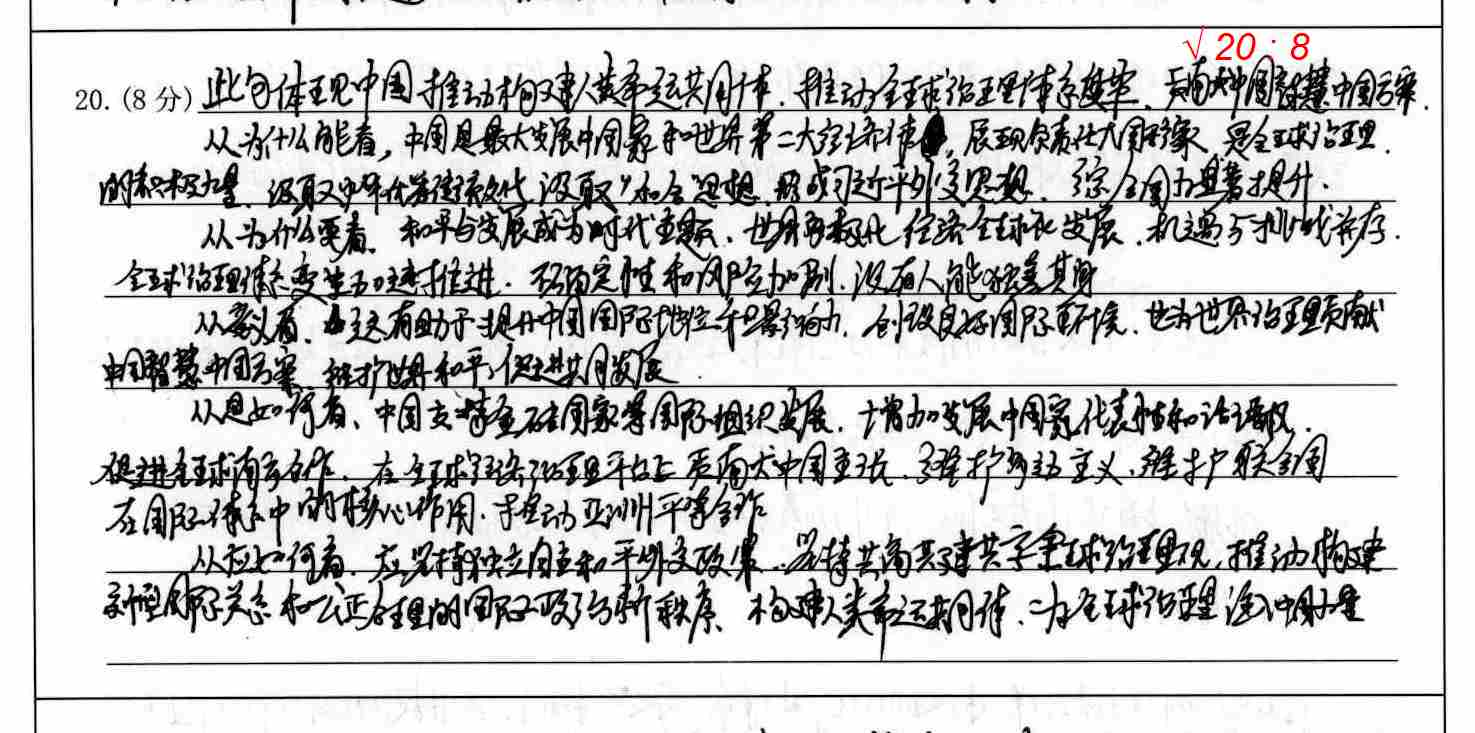 √ 20 : 8
20. (8 分) 此句体现中国推动构建人类命运共同体，推动全球治理体系变革，贡献中国智慧中国方案.
从为什么能看，中国是最大发展中国家和世界第二大经济体，展现负责任大国形象，是全球治理
的积极力量，汲取中华优秀传统文化，汲取"和合"思想，形成习近平外交思想，综合国力显著提升.
从为什么要看，和平与发展成为时代主题，世界多极化经济全球化发展，机遇与挑战并存.
全球治理体系变革加速推进，不确定性和风险加剧，没有人能独善其身
从意义看，这有助于提升中国国际地位和影响力，创设良好国际环境，也为世界治理贡献
中国智慧中国方案，维护世界和平，促进共同发展
从是如何看，中国支持金砖国家等国际组织发展，增加发展中国家代表性和话语权，
促进全球南方合作，在全球经济治理平台上贡献中国主张，维护多边主义，维护联合国
在国际体系中的核心作用，推动亚洲平等合作
从应如何看，应坚持独立自主和平外交政策，坚持共商共建共享全球治理观，推动构建
新型国际关系和公正合理的国际政治新秩序，构建人类命运共同体，为全球治理注入中国力量